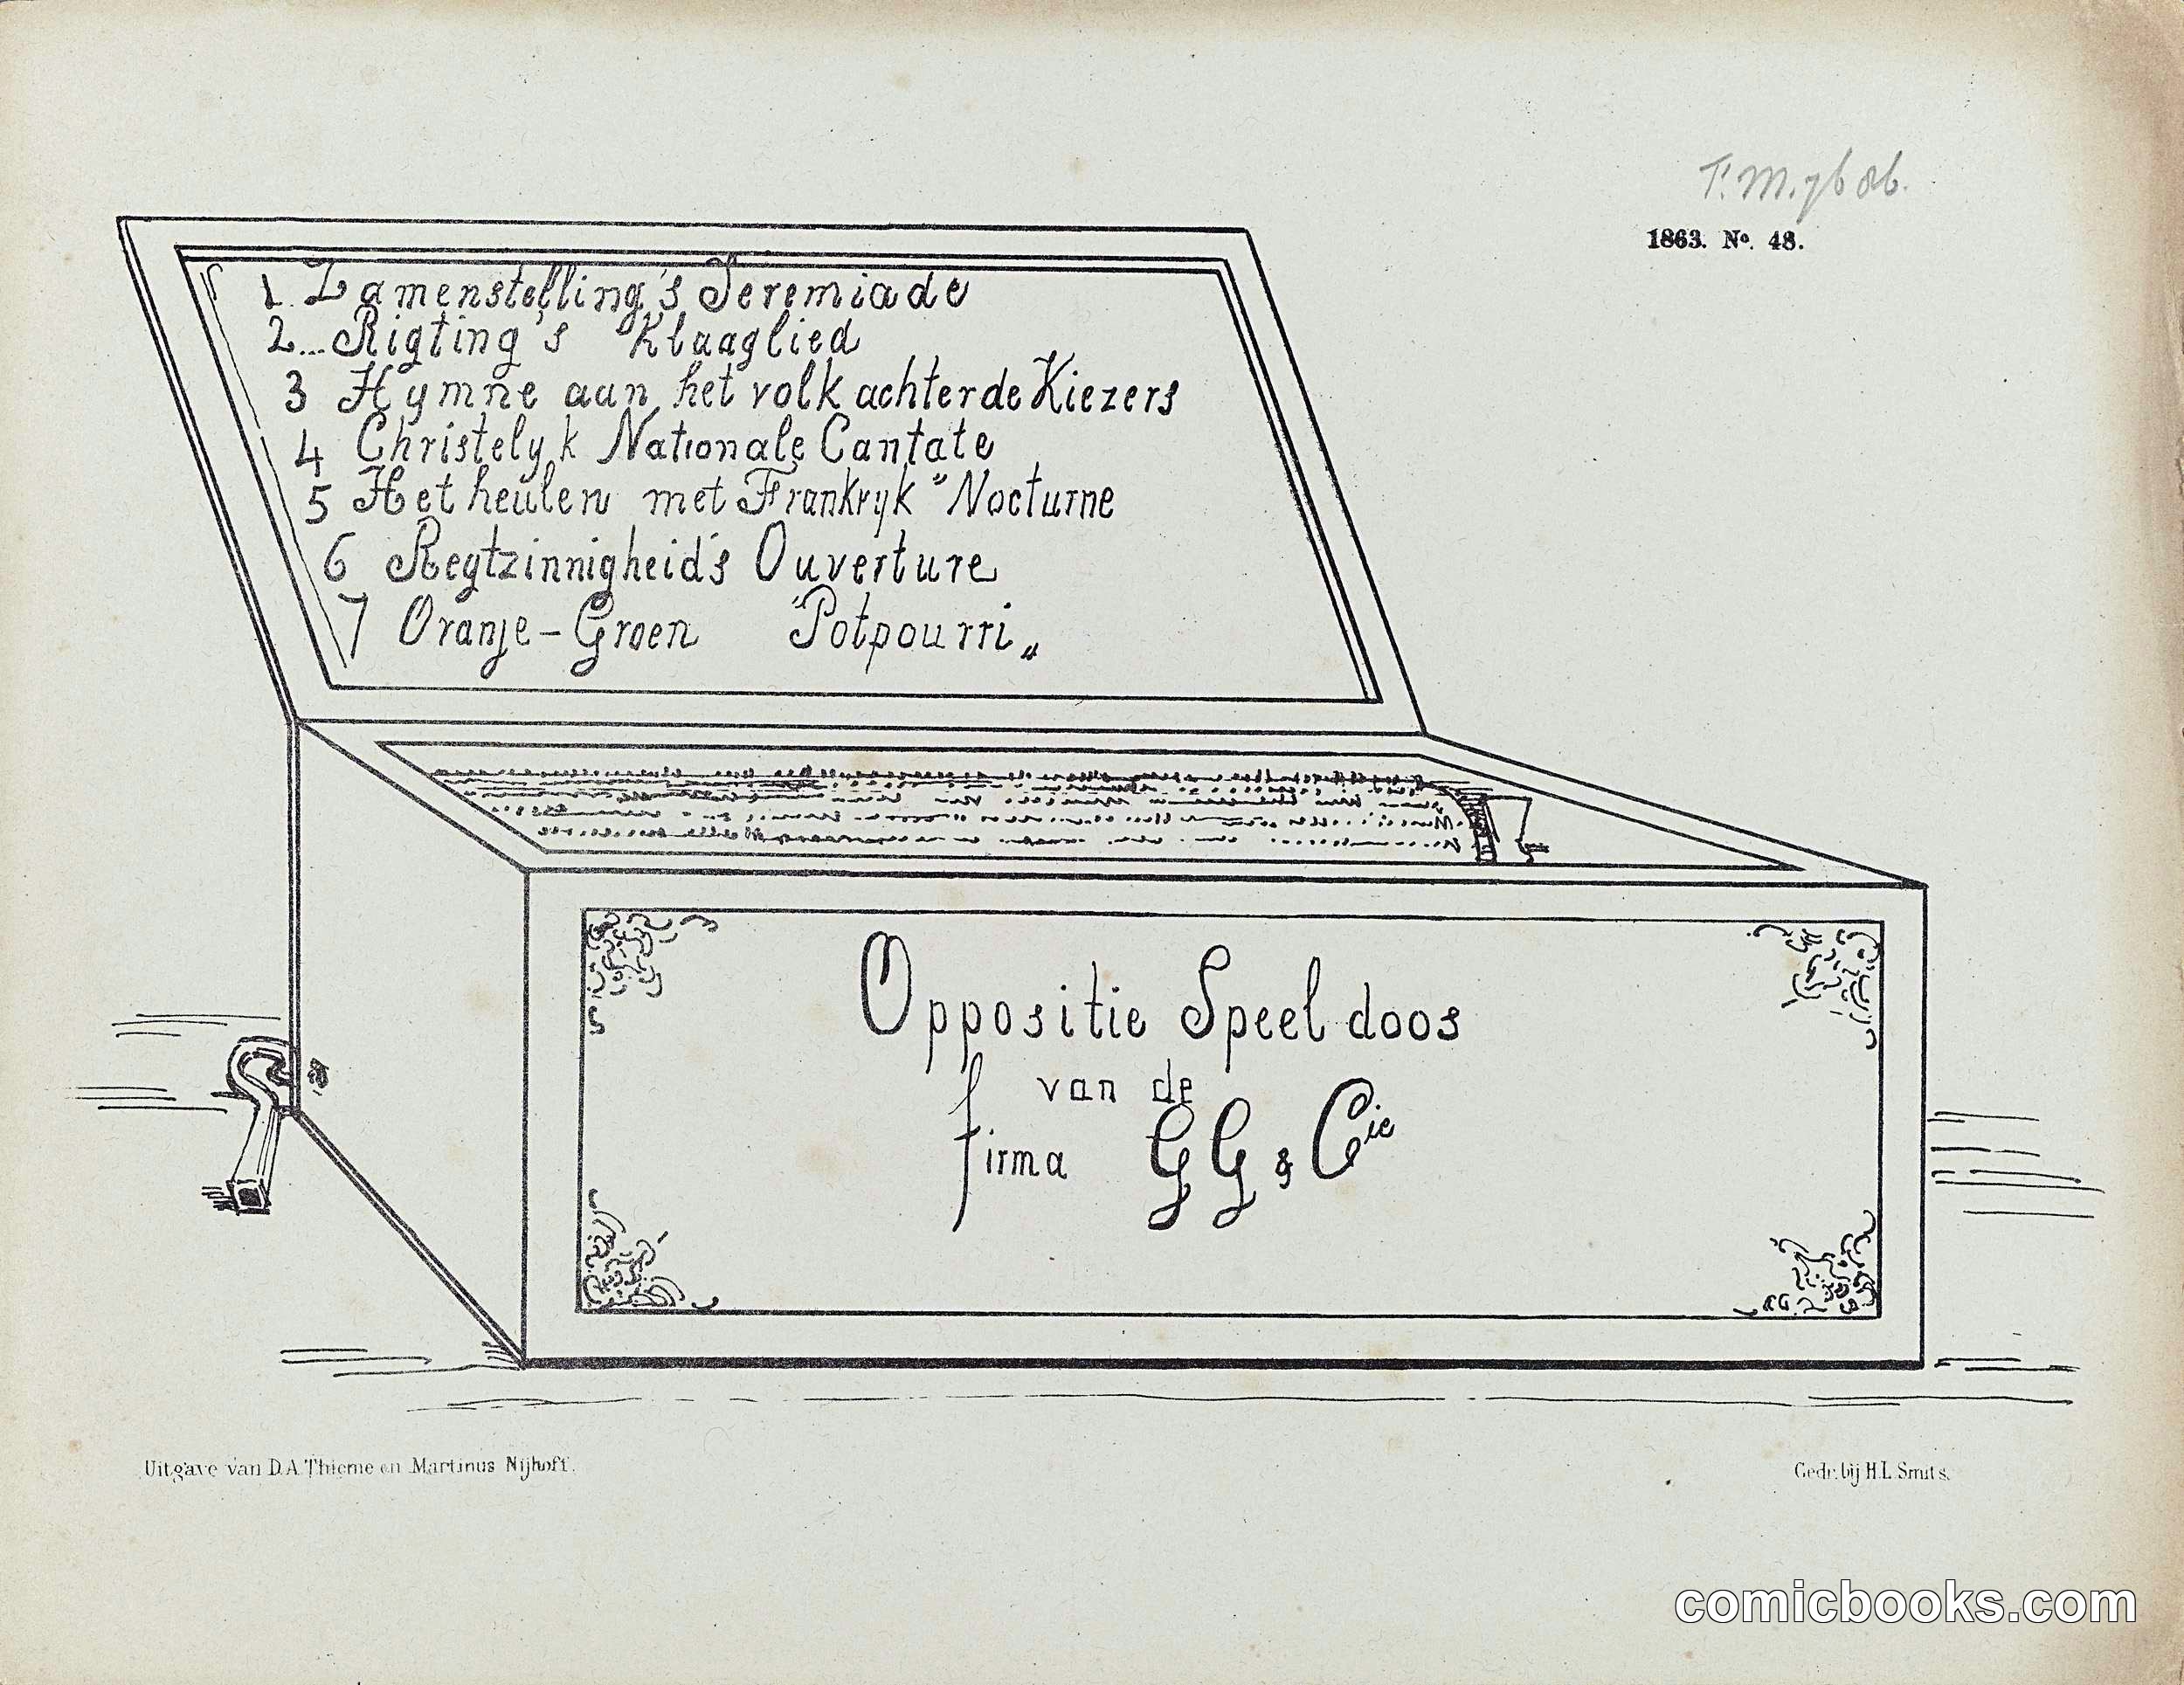 1863. No. 48.
1 Zamenstelling's Jeremiade
2... Rigting's Klaaglied
3 Hymne aan het volk achter de Kiezers
4 Christelyk Nationale Cantate
5 Het heulen met Frankryk "Nocturne
6 Regtzinnigheid's Ouverture
7 Oranje-Groen "Potpourri„
Oppositie Speeldoos
van de
firma GG & Cie
Uitgave van D.A. Thieme en Martinus Nijhoff.
Gedr. bij H.L. Smits.
comicbooks.com